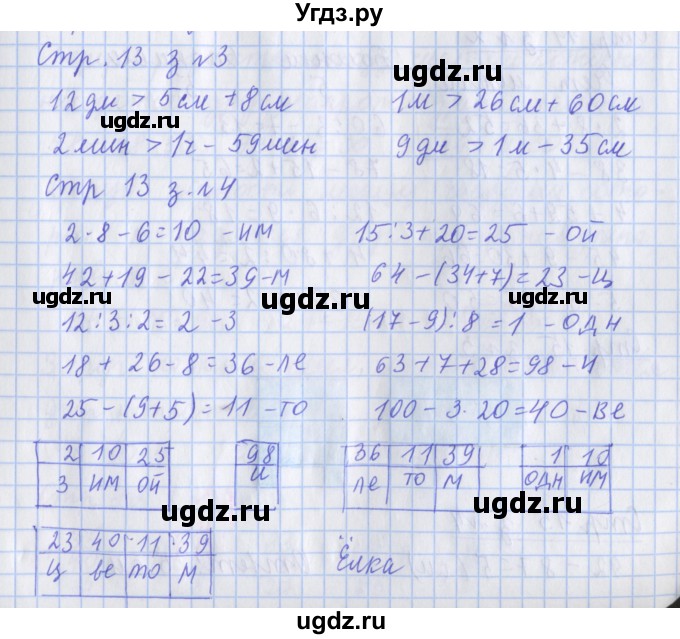 Угдз.ру
Стр. 13 з №3
12дм > 5см + 8см 1м > 26см + 60см
2мин > 1ч - 59мин 9дм > 1м - 35см
Стр 13 з. №4
2·8-6=10 -им 15:3+20=25 -ой
42+19-22=39-м 64-(34+7)=23-ц
12:3:2=2-з (17-9):8=1 -одн
18+26-8=36-ле 63+7+28=98-и
25-(9+5)=11-то 100-3·20=40-ве
2 10 25 98 36 11 39 1 10
з им ой и ле то м одн им
23 40 11 39
ц ве то м
Ёлка
ugdz.ru
ugdz.ru
ugdz.ru
ugdz.ru
ugdz.ru
ugdz.ru
ugdz.ru
ugdz.ru
ugdz.ru
ugdz.ru
ugdz.ru
ugdz.ru
ugdz.ru